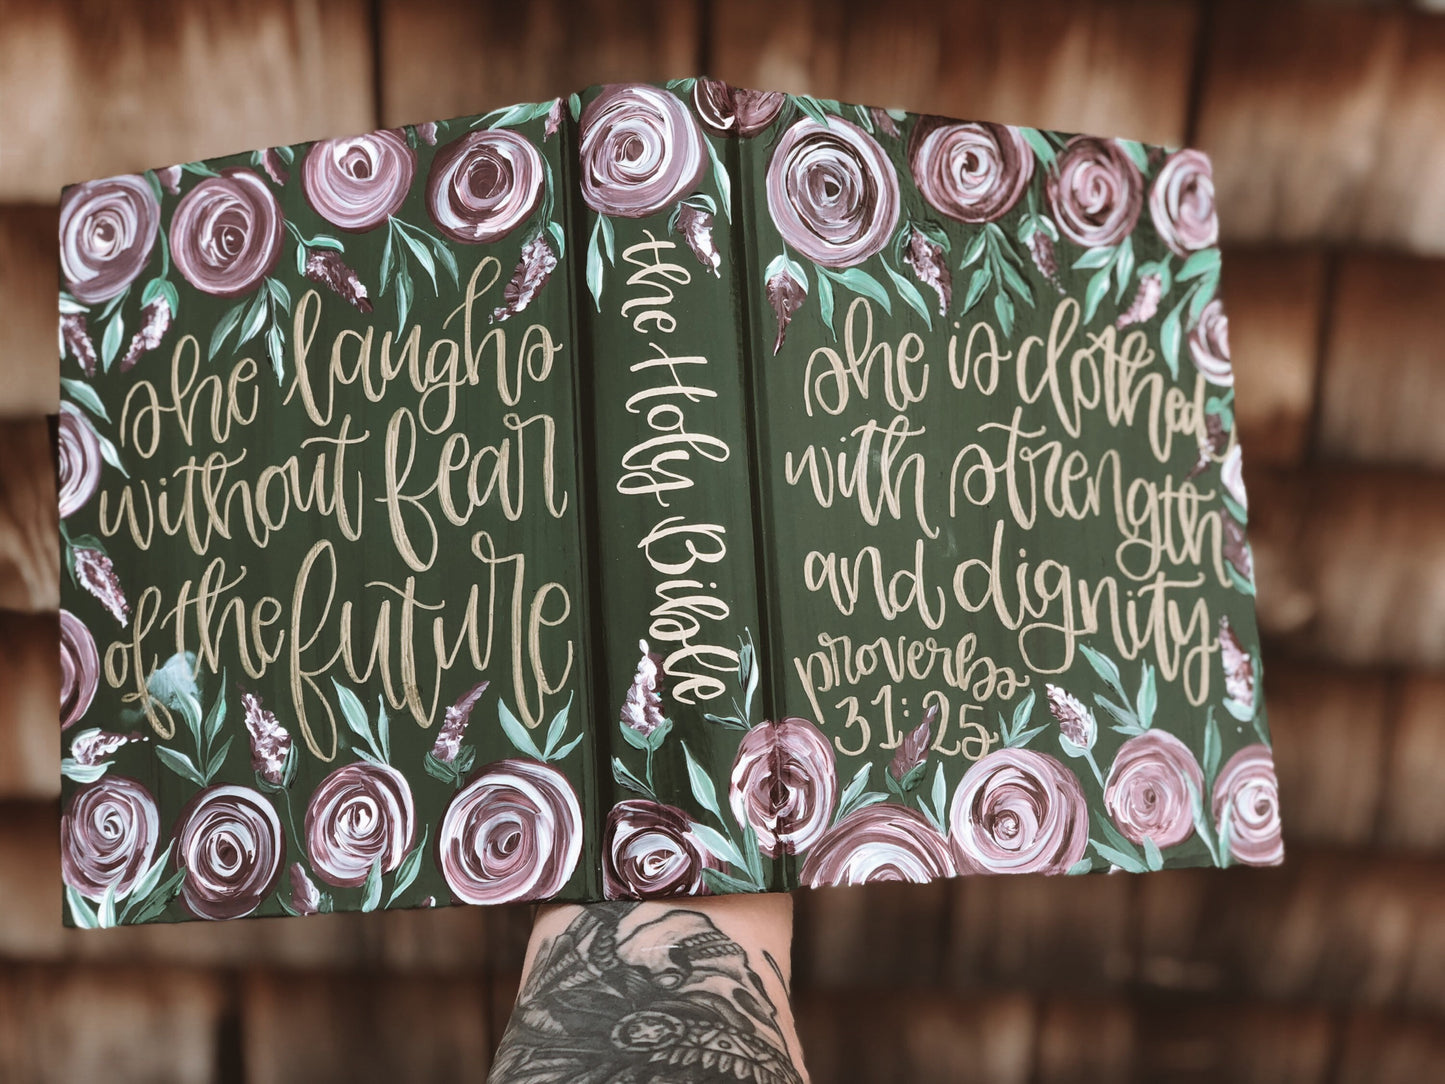 she laughs
without fear
of the future
the Holy Bible
she is clothed
with strength
and dignity
proverbs
31:25